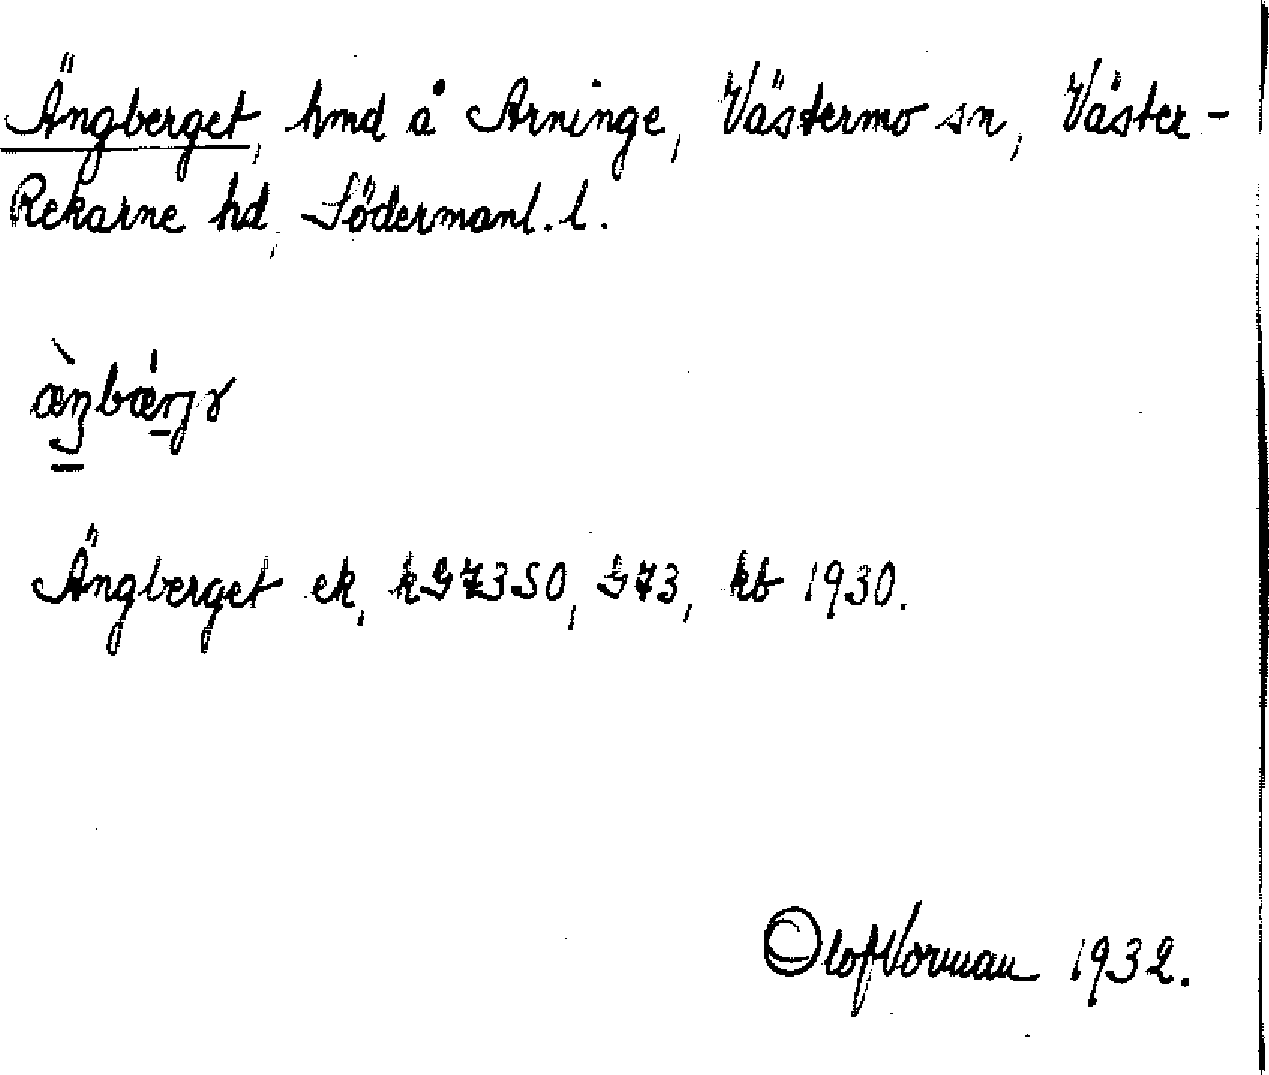 Ängberget, hmd å Arninge, Västermo sn, Väster-
Rekarne hd, Södermanl. l.
Ängberget ek, kGZ3SO, GZ3, kb 1930.
Olof Vorman 1932.